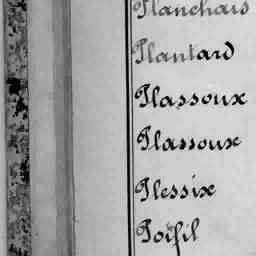 Planchais
Plantard
Plassoux
Plassoux
Plessix
Poisil